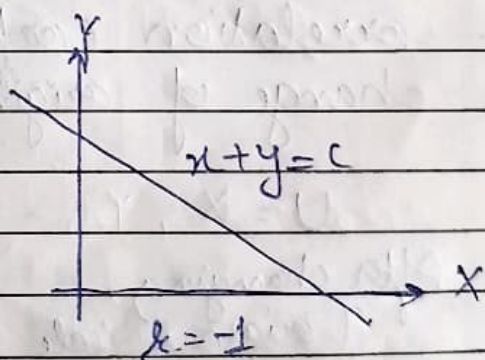 Y
x+y=c
X
r=-1